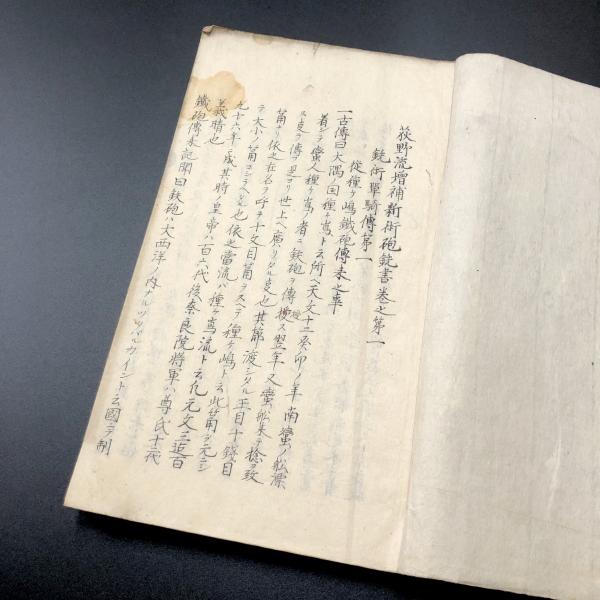 荻野流増補新術砲銃書巻之第一
銃術單騎傳第一
従種ヶ嶋鐵砲傳来之事
一古傳曰大隅ノ国種ヶ嶌ト云所ヘ天文十二癸卯ノ年南蛮ノ舩漂
着シテ蛮人種ヶ嶌ノ者ニ鉄砲ヲ傳授ス翌年又蛮舩来テ捻ヲ教
ス是ヲ傳ヲ見ヨリ世上ヘ廣リタル也其節渡シタル玉目十錢目
筒ナリ依之在名ヲ呼テ十文目筒ヲスヘテ種ヶ嶋ト云此筒ヲ元ニシ
テ大小ノ筒コシラヘ也依之當流ハ種ヶ嶌流ト云凡元文三迄百
九十六年ニ成其時ノ皇帝ハ一百六代後奈良院将軍ハ尊氏十二代
義晴也
鐵砲傳来記聞曰鉄砲ハ大西洋ノ内ナル カイント云國ニテ制